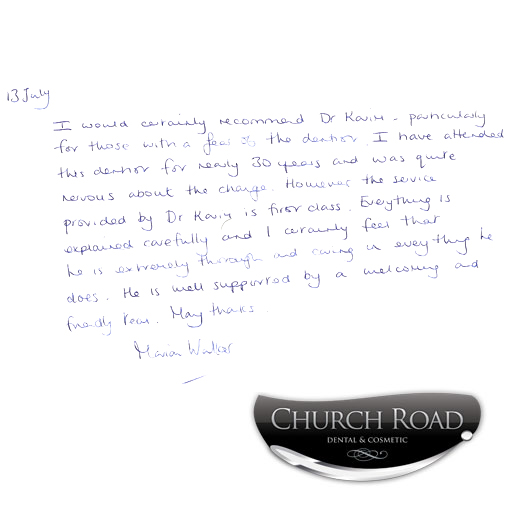 13 July
I would certainly recommend Dr Karim - particularly
for those with a fear of the dentist. I have attended
this dentist for nearly 30 years and was quite
nervous about the change. However the service
provided by Dr Karim is first class. Everything is
explained carefully and I certainly feel that
he is extremely thorough and caring in everything he
does. He is well supported by a welcoming and
friendly team. Many thanks.
Marian Walker
CHURCH ROAD
DENTAL & COSMETIC